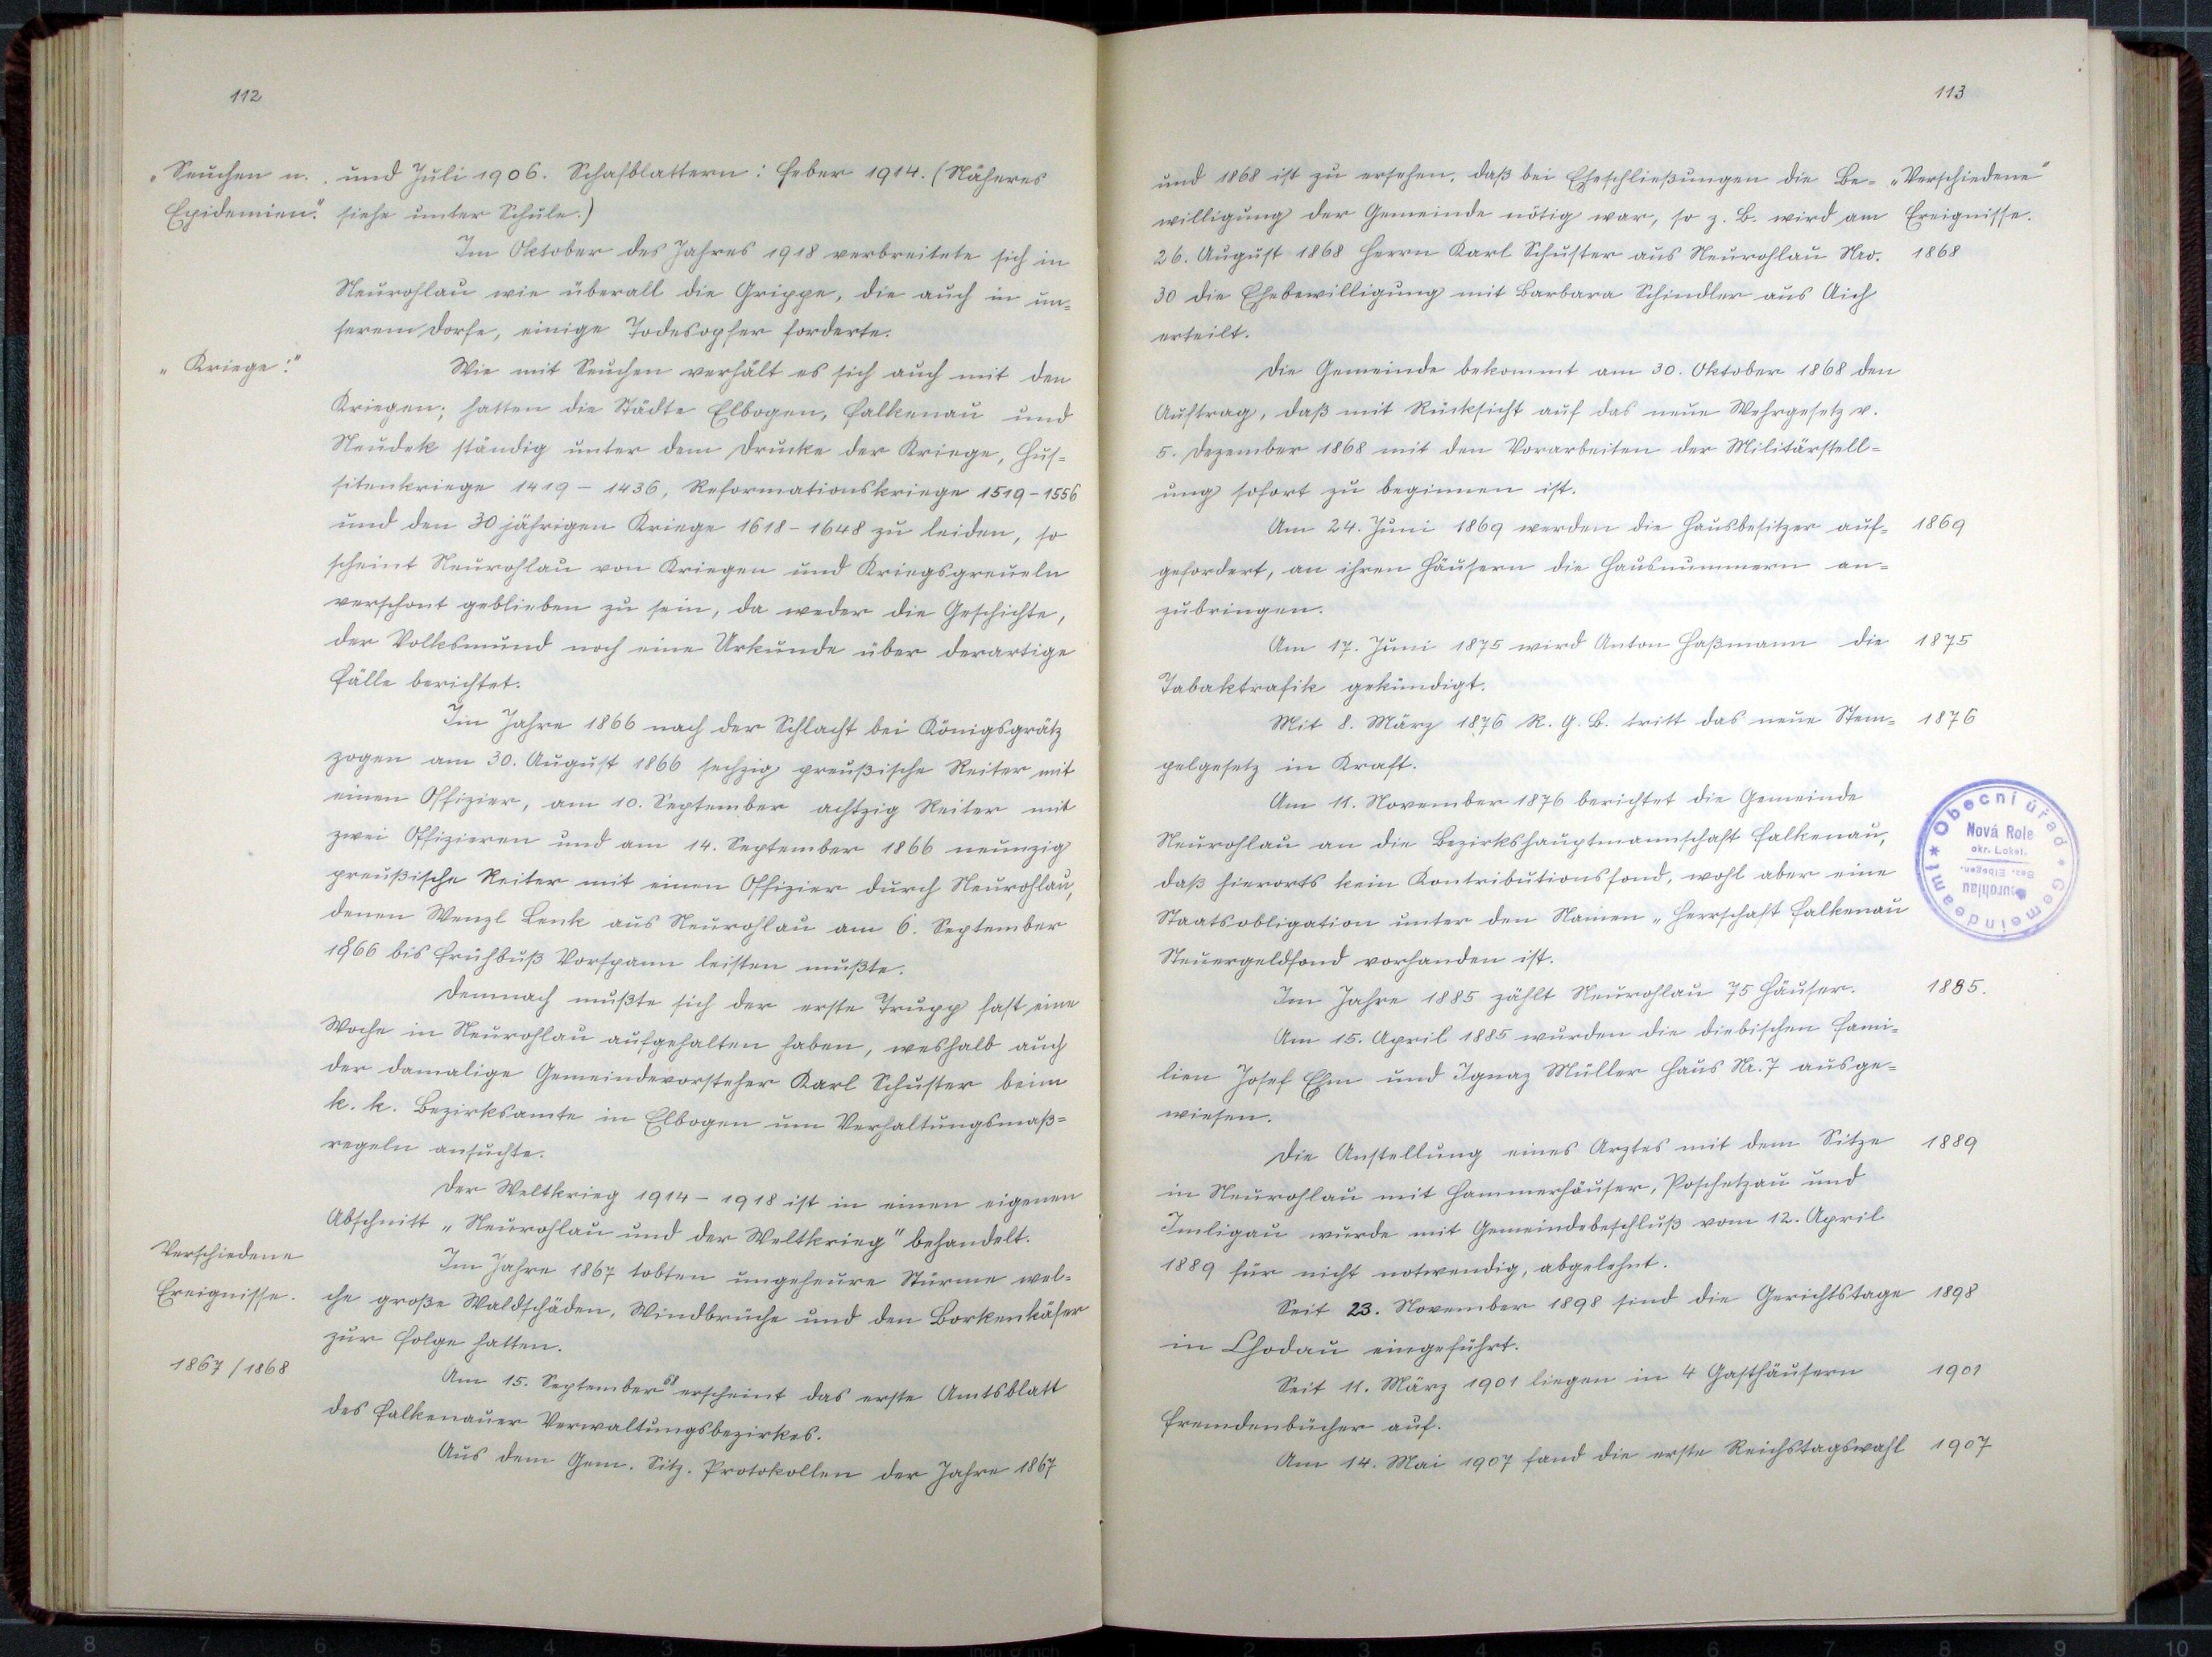 112
„Seuchen u.
Epidemien".
und Juli 1906. Schafblattern: Feber 1914. (Näheres
siehe unter Schule.)
Im Oktober des Jahres 1918 verbreitete sich in
Neurohlau wie überall die Grippe, die auch in un=
serem Dorfe, einige Todesopfer forderte.
„Kriege:"
Wie mit Seuchen verhält es sich auch mit den
Kriegen; hatten die Städte Elbogen, Falkenau und
Neudek ständig unter dem Drucke der Kriege, Hus=
sitenkriege 1419 – 1436, Reformationskriege 1519 – 1556
und den 30 jährigen Kriege 1618 – 1648 zu leiden, so
scheint Neurohlau von Kriegen und Kriegsgreueln
verschont geblieben zu sein, da weder die Geschichte,
der Volksmund noch eine Urkunde über derartige
Fälle berichtet.
Im Jahre 1866 nach der Schlacht bei Königsgrätz
zogen am 30. August 1866 sechzig preußische Reiter mit
einen Offizier, am 10. September achtzig Reiter mit
zwei Offizieren und am 14. September 1866 neunzig
preußische Reiter mit einen Offizier durch Neurohlau,
denen Wenzl Lenk aus Neurohlau am 6. September
1866 bis Frühbuß Vorspann leisten mußte.
Demnach mußte sich der erste Trupp fast eine
Woche in Neurohlau aufgehalten haben, weshalb auch
der damalige Gemeindevorsteher Karl Schuster beim
k. k. Bezirksamte in Elbogen um Verhaltungsmaß=
regeln ansuchte.
Der Weltkrieg 1914 – 1918 ist in einen eigenen
Abschnitt „Neurohlau und der Weltkrieg" behandelt.
Verschiedene
Ereignisse.
Im Jahre 1867 tobten ungeheure Stürme wel=
che große Waldschäden, Windbrüche und den Borkenkäfer
zur Folge hatten.
1867/1868
Am 15. September 68 erscheint das erste Amtsblatt
des Falkenauer Verwaltungsbezirkes.
Aus dem Gem. Sitz. Protokollen der Jahre 1867
113
und 1868 ist zu ersehen, daß bei Eheschließungen die Be=
„Verschiedene"
willigung der Gemeinde nötig war, so z. B. wird am
Ereignisse.
26. August 1868 Herrn Karl Schuster aus Neurohlau Nro.
1868
30 die Ehebewilligung mit Barbara Schindler aus Aich
erteilt.
Die Gemeinde bekommt am 30. Oktober 1868 den
Auftrag, daß mit Rücksicht auf das neue Wehrgesetz v.
5. Dezember 1868 mit den Vorarbeiten der Militärstell=
ung sofort zu beginnen ist.
Am 24. Juni 1869 werden die Hausbesitzer auf=
1869
gefordert, an ihren Häusern die Hausnummern an=
zubringen.
Am 17. Juni 1875 wird Anton Haßmann die
1875
Tabaktrafik gekündigt.
Mit 8. März 1876 R. G. B. tritt das neue Stem=
1876
pelgesetz in Kraft.
Am 11. November 1876 berichtet die Gemeinde
Neurohlau an die Bezirkshauptmannschaft Falkenau,
daß hierorts kein Kontributionsfond, wohl aber eine
Staatsobligation unter den Namen „Herrschaft Falkenau
Steuergeldfond vorhanden ist.
Obecní úřad * Gemeindeamt *
Nová Role
okr. Loket.
Bez. Elbogen.
Neurohlau
Im Jahre 1885 zählt Neurohlau 75 Häuser.
1885.
Am 15. April 1885 wurden die diebischen Fami=
lien Josef Ehm und Ignaz Müller Haus Nr. 7 ausge=
wiesen.
Die Anstellung eines Arztes mit dem Sitze
1889
in Neurohlau mit Hammerhäuser, Poschetzau und
Imligau wurde mit Gemeindebeschluß vom 12. April
1889 für nicht notwendig, abgelehnt.
Seit 23. November 1898 sind die Gerichtstage
1898
in Chodau eingeführt.
Seit 11. März 1901 liegen in 4 Gasthäusern
1901
Fremdenbücher auf.
Am 14. Mai 1907 fand die erste Reichstagswahl
1907